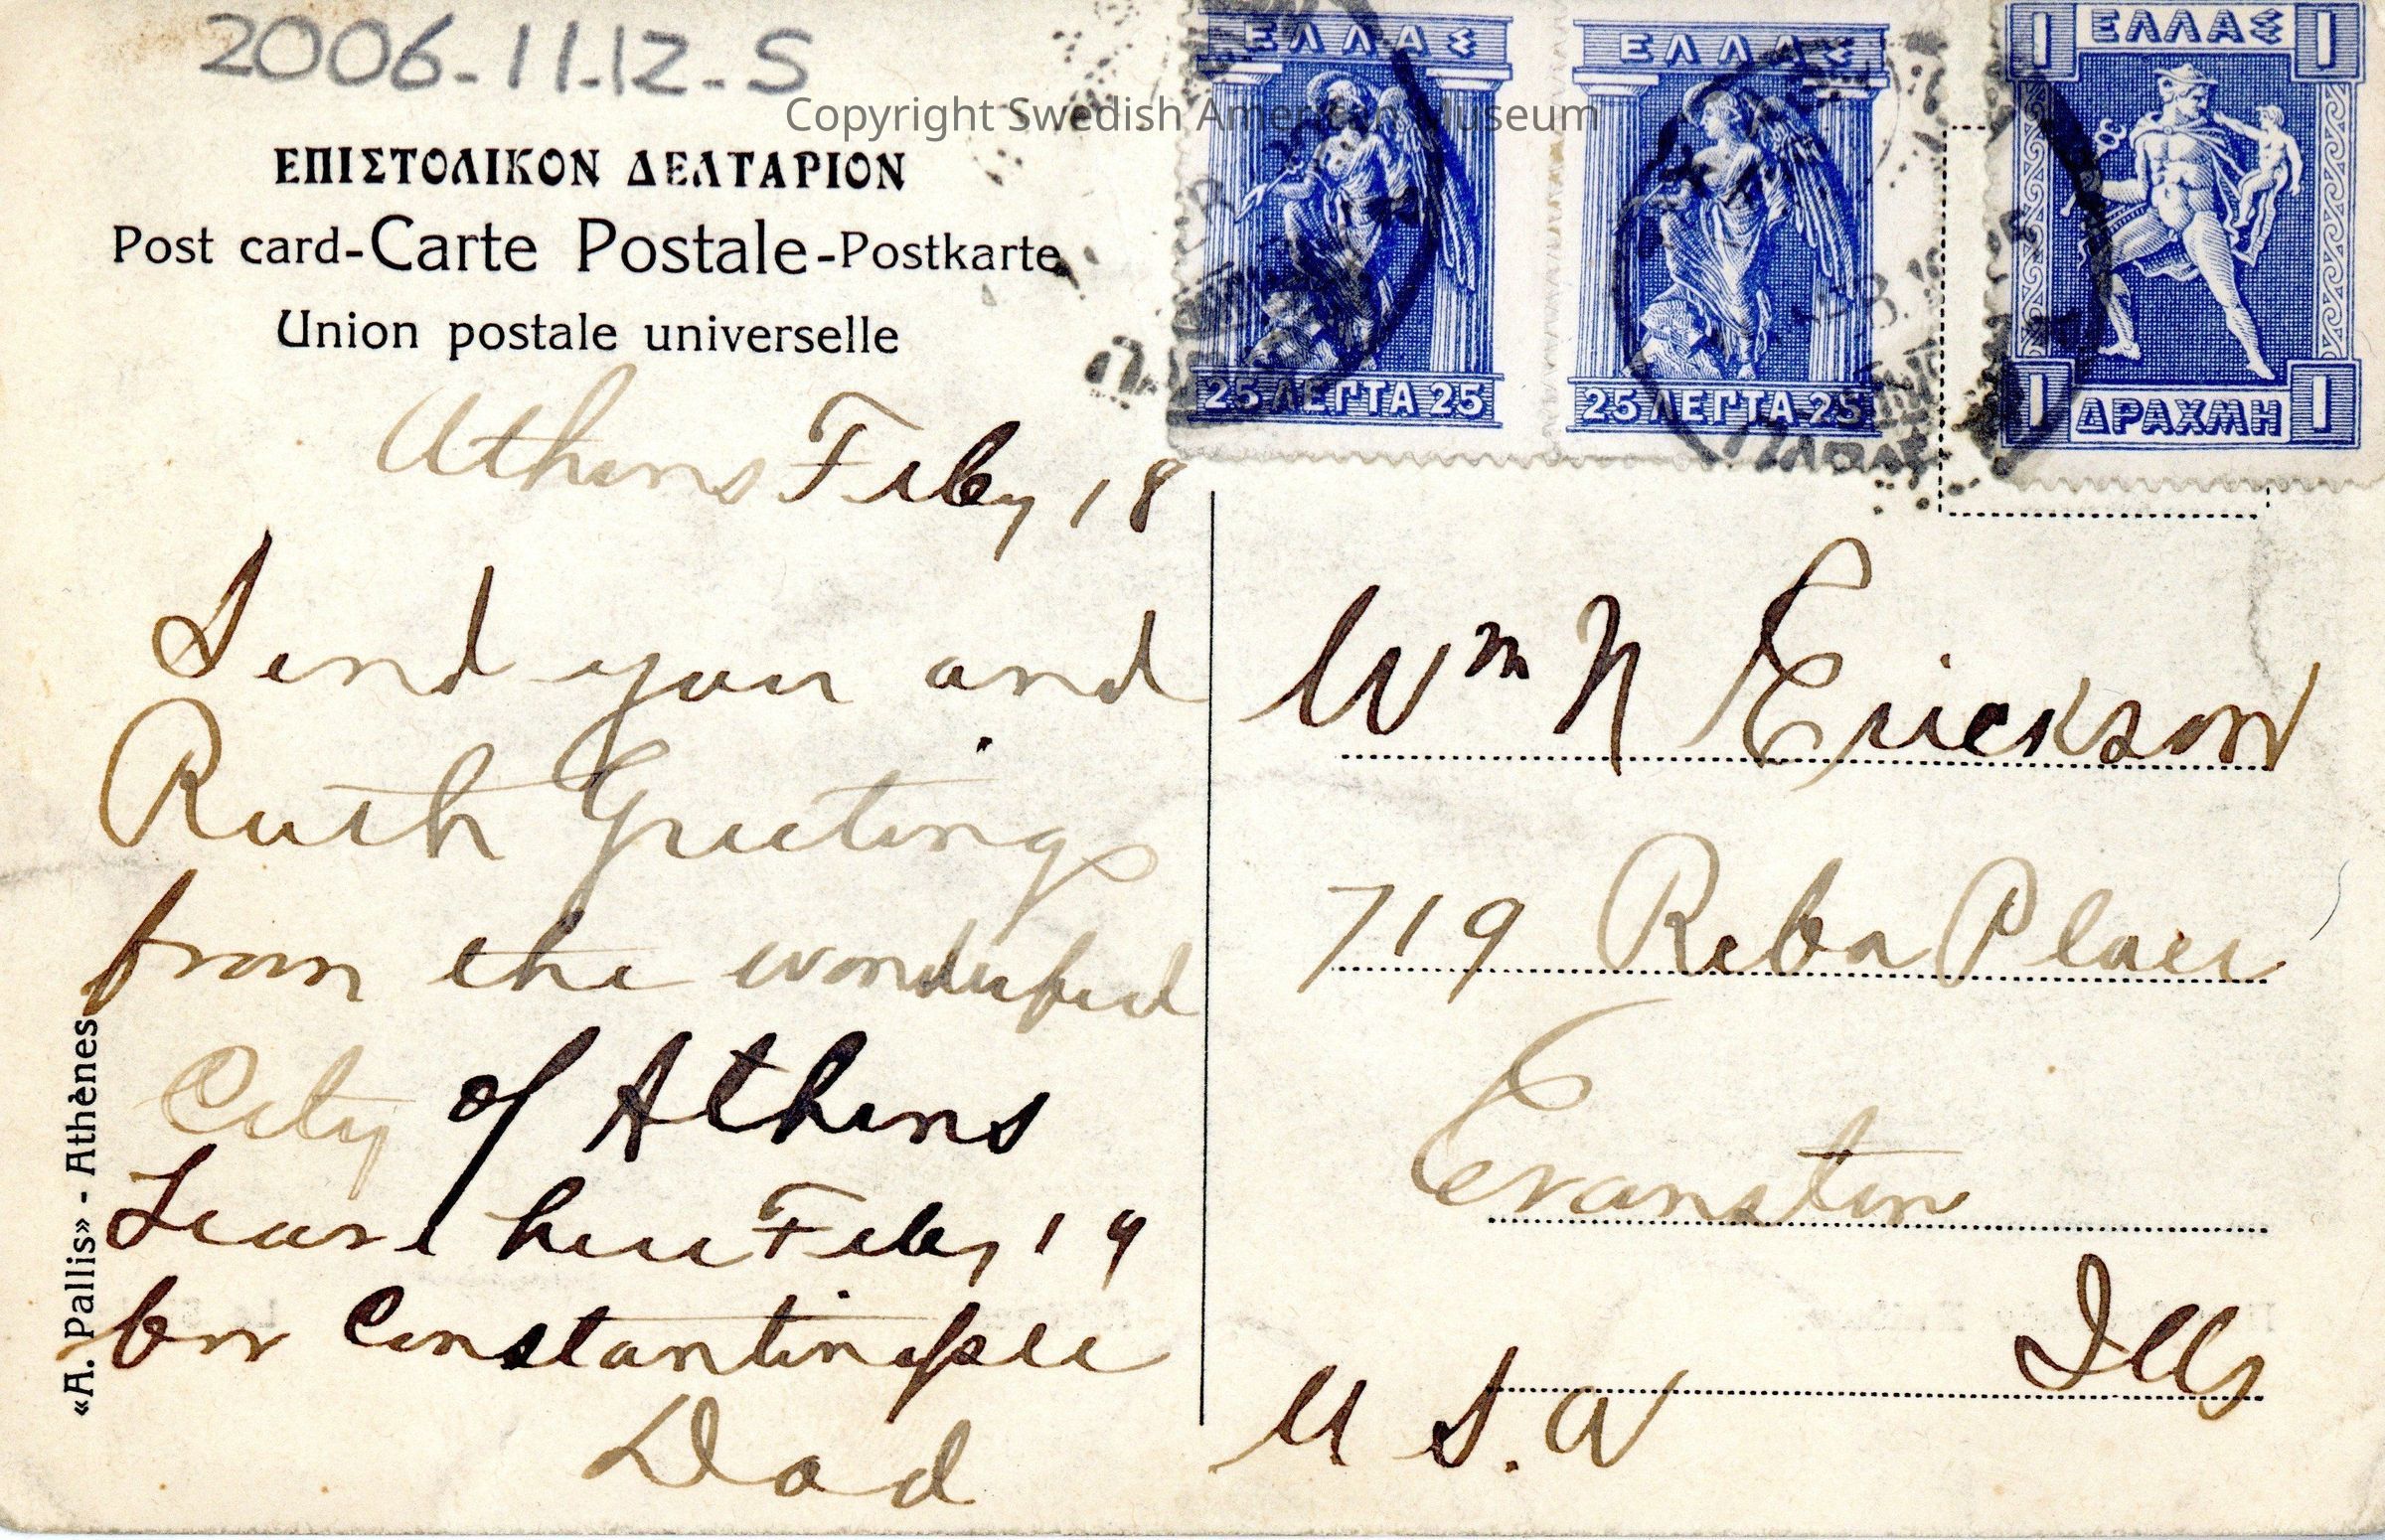 2006-11.12-S
Copyright Swedish American Museum
ΕΠΙΣΤΟΛΙΚΟΝ ΔΕΛΤΑΡΙΟΝ
Post card-Carte Postale-Postkarte
Union postale universelle
ΕΛΛΑΣ
25 ΛΕΠΤΑ 25
ΕΛΛΑΣ
25 ΛΕΠΤΑ 25
1 ΕΛΛΑΣ 1
1 ΔΡΑΧΜΗ 1
Athens Feby 18
Send you and
Ruth Greetings
from the wonderful
City of Athens
Leave here Feby 19
for Constantinople
Dad
Wm N Erickson
719 Reba Place
Evanston
Ills
U S. A
«A. Pallis» - Athènes